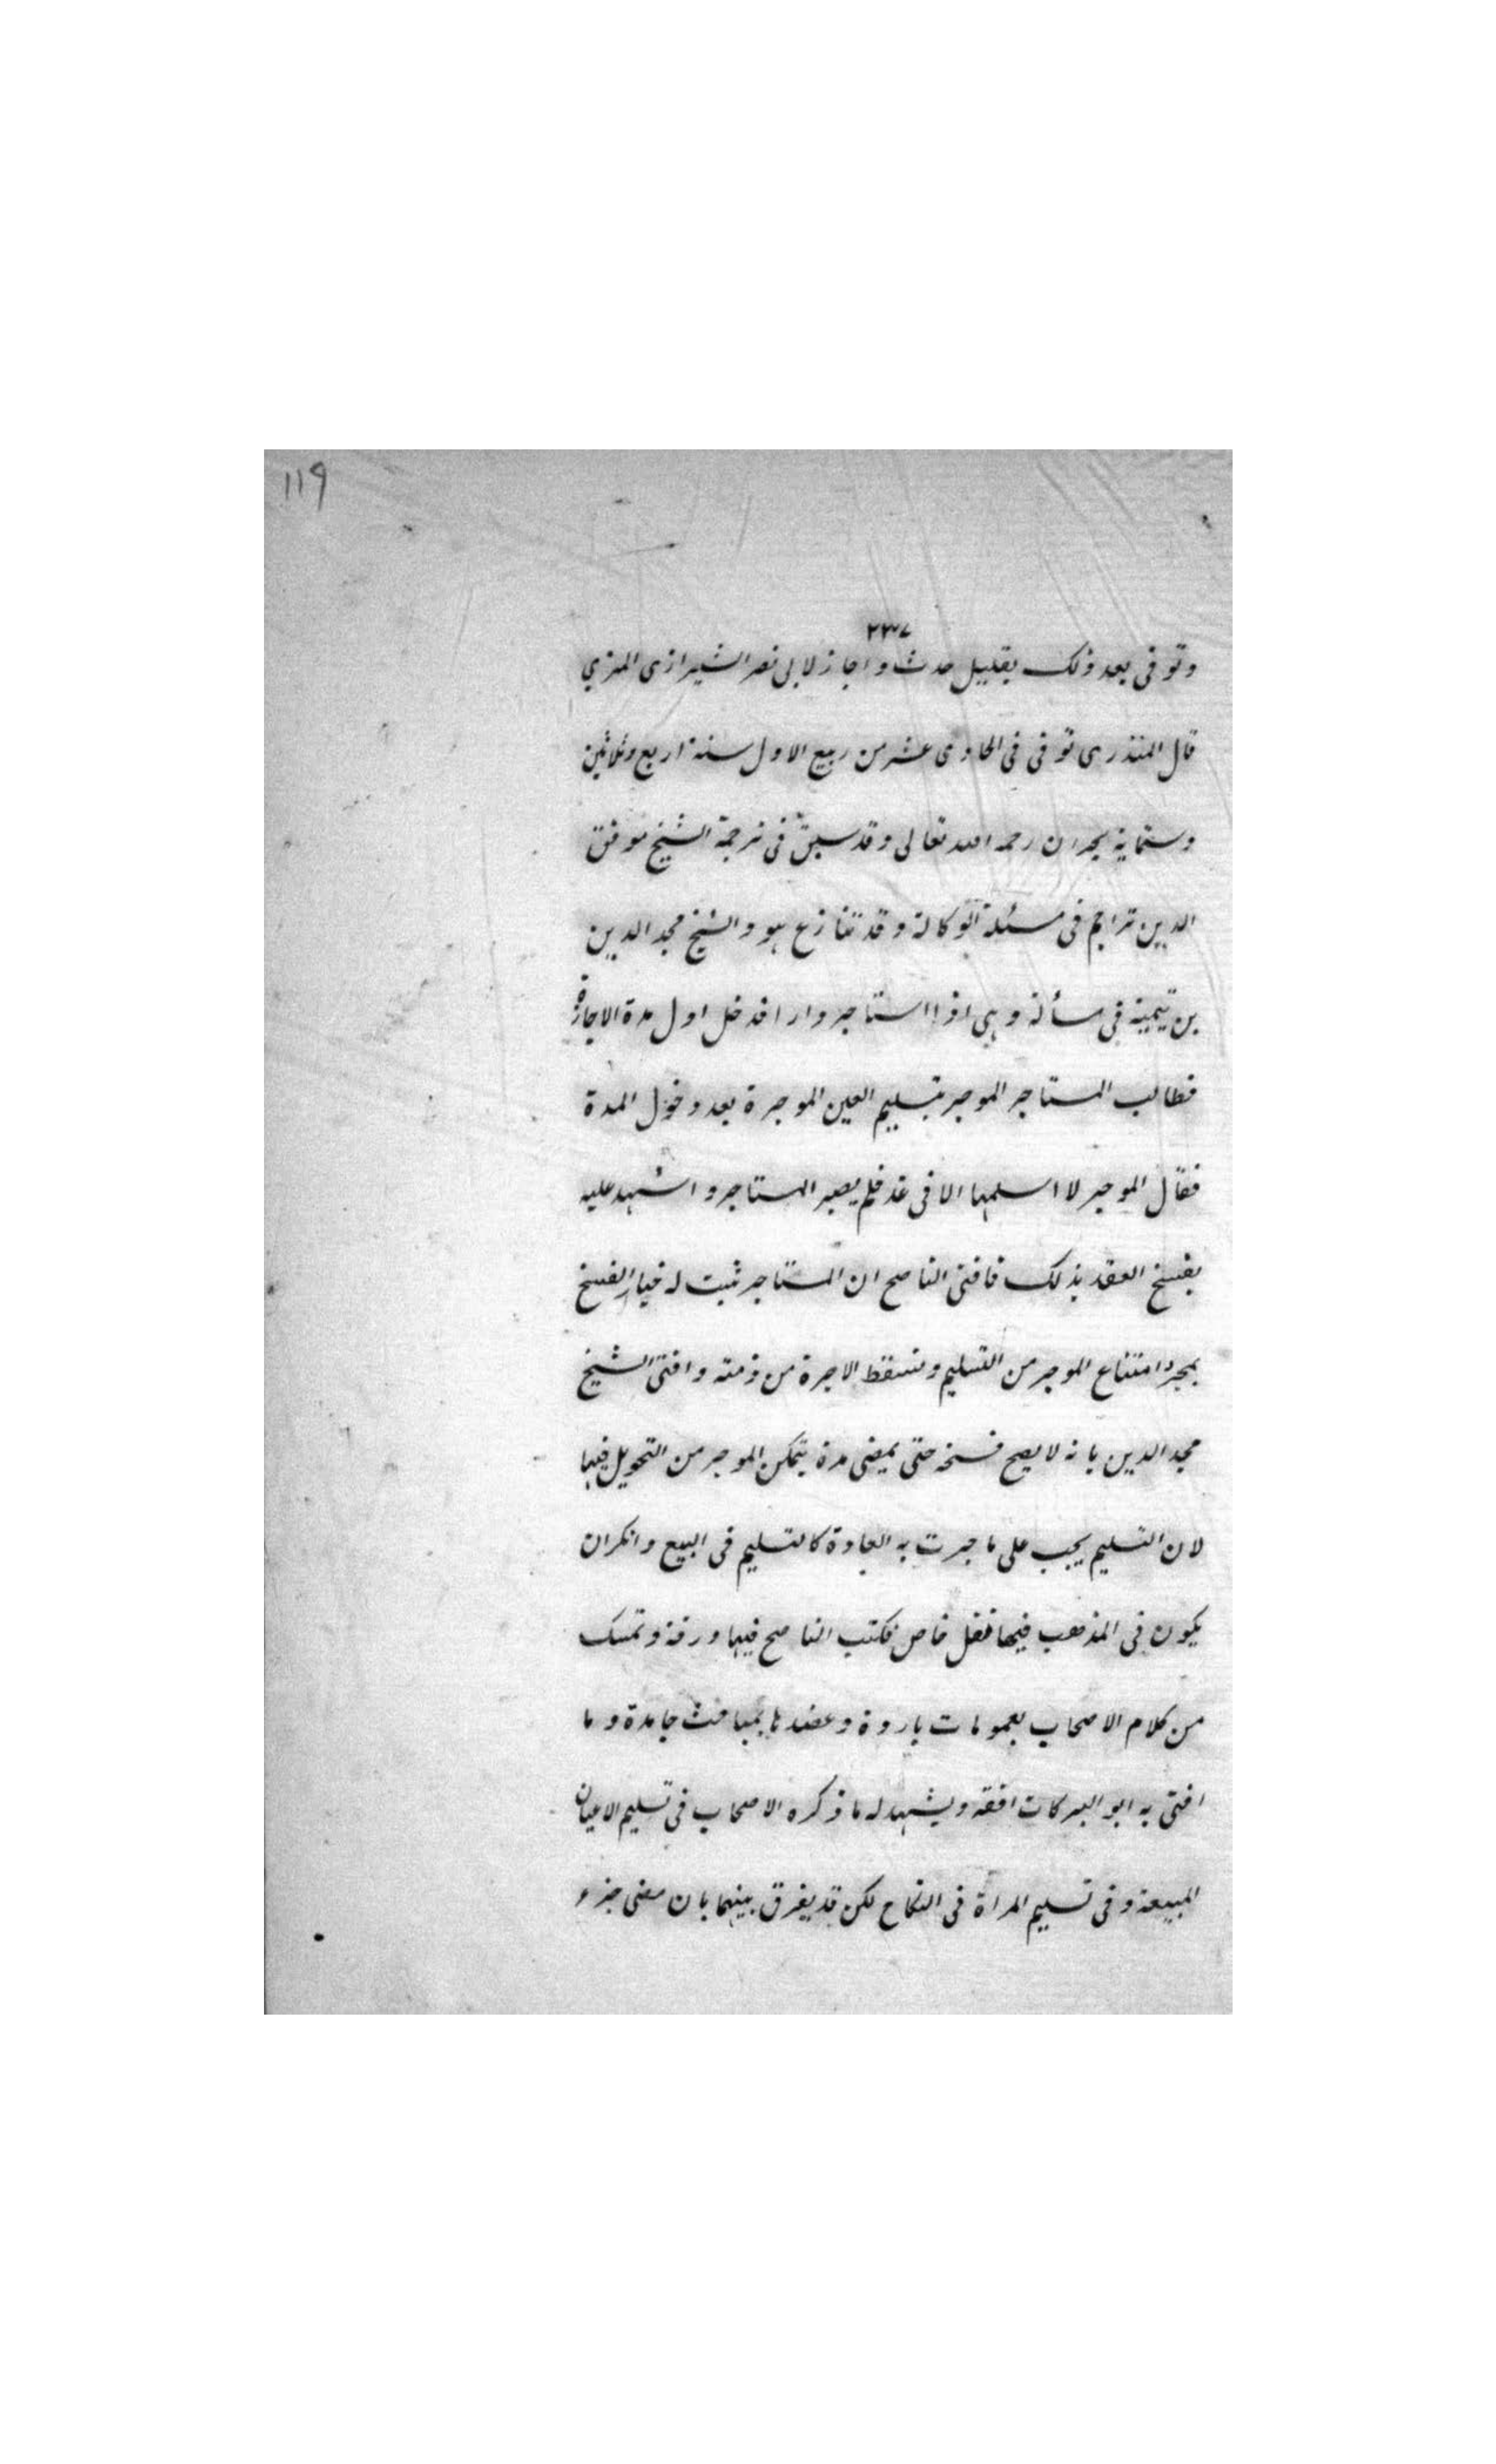 ١١٩
٢٣٧
وتوفى بعد ذلك بقليل حدث واجاز لابى نصر الشيرازى المزي
قال المنذرى توفى فى الحادى عشر من ربيع الاول سنة اربع وثلاثين
وستماية بحران رحمه الله تعالى وقد سبق فى ترجمة الشيخ موفق
الدين تراجم فى مسئلة الوكالة وقد تنازع هو والشيخ مجد الدين
بن تيمية فى مسألة وهى اذا استاجر دارا فدخل اول مدة الاجازة
فطالب المستاجر الموجر بتسليم العين الموجرة بعد دخول المدة
فقال الموجر لا اسلمها الا فى غد فلم يصبر المستاجر واشهد عليه
بفسخ العقد بذلك فافتى الناصح ان المستاجر ثبت له خيار الفسخ
بمجرد امتناع الموجر من التسليم وتسقط الاجرة من ذمته وافتى الشيخ
مجد الدين بانه لا يصح فسخه حتى يمضى مدة يتمكن الموجر من التحويل فيها
لان التسليم يجب على ما جرت به العادة كالتسليم فى البيع وانكر ان
يكون فى المذهب فيها نقل خاص فكتب الناصح فيها ورقة وتمسك
من كلام الاصحاب بعمومات باردة وعضدها بمباحث جامدة وما
افتى به ابو البركات افقه ويشهد له ما ذكره الاصحاب فى تسليم الاعيان
المبيعة وفى تسليم المراة فى النكاح لكن قد يفرق بينهما بان مضى جزء